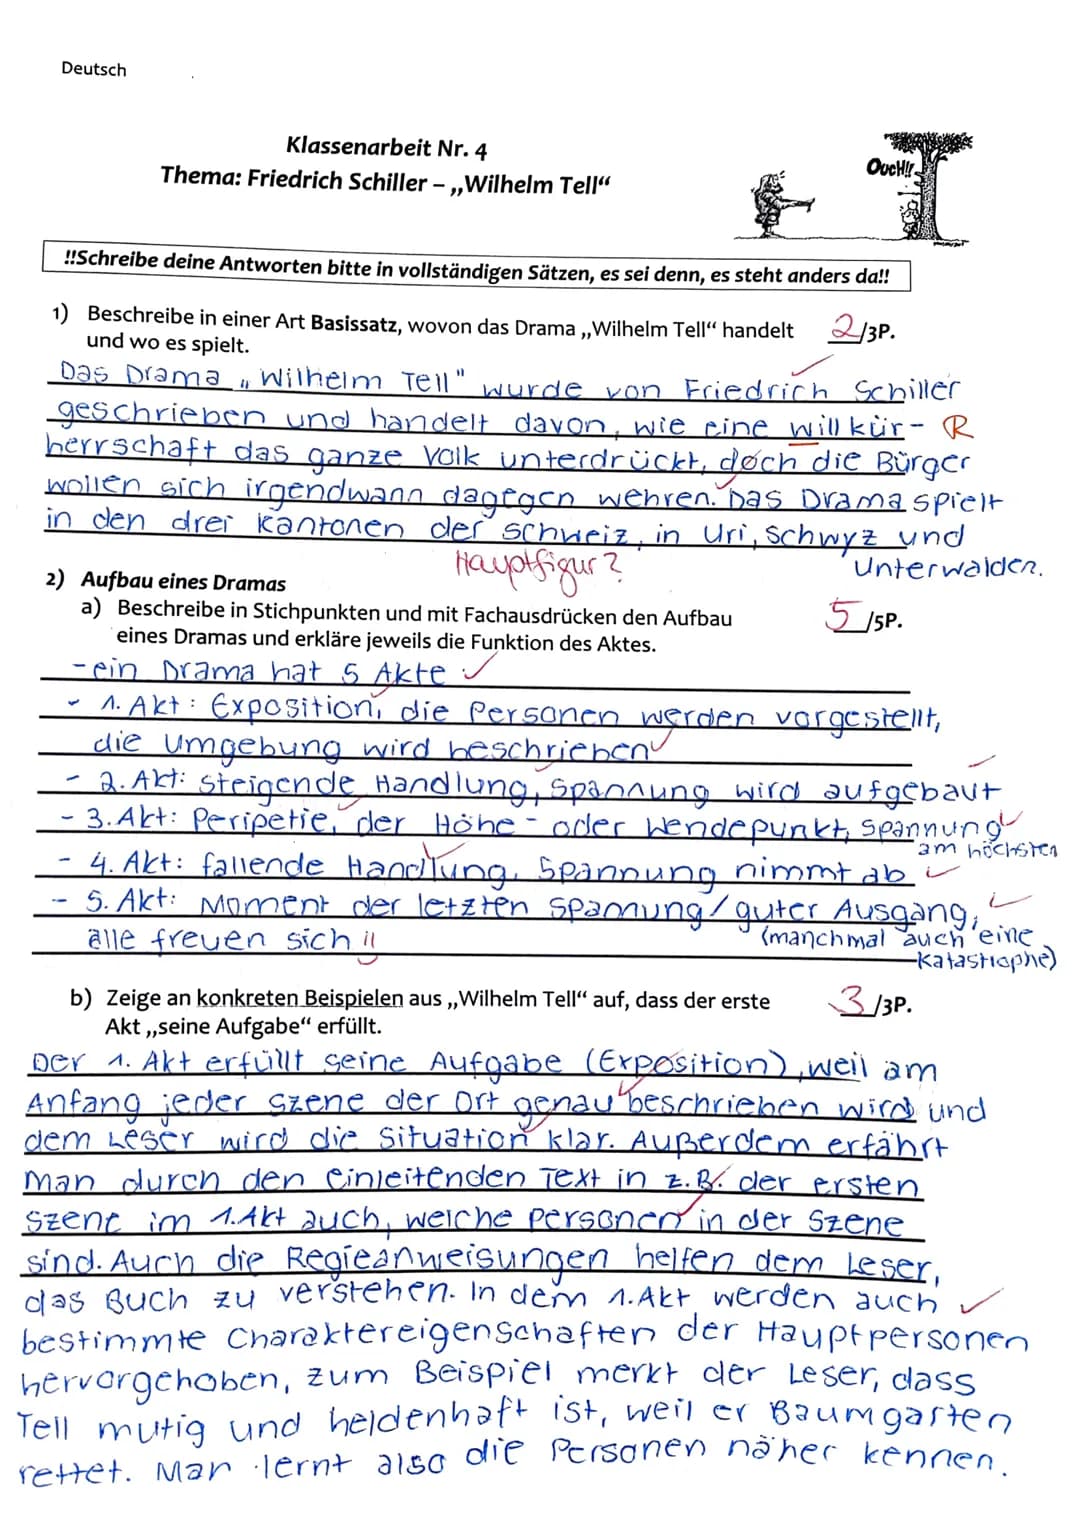 Deutsch
Klassenarbeit Nr. 4
Thema: Friedrich Schiller – „Wilhelm Tell“
OUCH!!
!!Schreibe deine Antworten bitte in vollständigen Sätzen, es sei denn, es steht anders da!!
1) Beschreibe in einer Art Basissatz, wovon das Drama „Wilhelm Tell“ handelt 2/3P.
und wo es spielt.
Das Drama „Wilhelm Tell" wurde von Friedrich Schiller
geschrieben und handelt davon, wie eine willkür- R
herrschaft das ganze Volk unterdrückt, doch die Bürger
wollen sich irgendwann dagegen wehren. Das Drama spielt
in den drei Kantonen der Schweiz, in Uri, Schwyz und
Unterwalden.
Hauptfigur?
2) Aufbau eines Dramas
a) Beschreibe in Stichpunkten und mit Fachausdrücken den Aufbau 5/5P.
eines Dramas und erkläre jeweils die Funktion des Aktes.
- ein Drama hat 5 Akte
- 1. Akt: Exposition, die Personen werden vorgestellt,
die Umgebung wird beschrieben
- 2. Akt: steigende Handlung, Spannung wird aufgebaut
- 3. Akt: Peripetie, der Höhe- oder Wendepunkt, Spannung
am höchsten
- 4. Akt: fallende Handlung, Spannung nimmt ab
- 5. Akt: Moment der letzten Spannung/guter Ausgang,
alle freuen sich (manchmal auch eine
Katastrophe)
b) Zeige an konkreten Beispielen aus „Wilhelm Tell“ auf, dass der erste 3/3P.
Akt „seine Aufgabe“ erfüllt.
Der 1. Akt erfüllt seine Aufgabe (Exposition), weil am
Anfang jeder Szene der Ort genau beschrieben wird und
dem Leser wird die Situation klar. Außerdem erfährt
man durch den einleitenden Text in z.B. der ersten
Szene im 1. Akt auch, welche Personen in der Szene
sind. Auch die Regieanweisungen helfen dem Leser,
das Buch zu verstehen. In dem 1. Akt werden auch
bestimmte Charaktereigenschaften der Hauptpersonen
hervorgehoben, zum Beispiel merkt der Leser, dass
Tell mutig und heldenhaft ist, weil er Baumgarten
rettet. Man lernt also die Personen näher kennen.